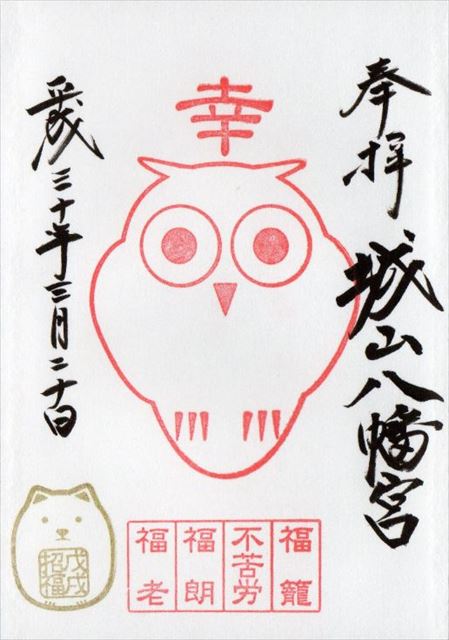 奉拝
城山八幡宮
幸
平成三十年三月二十日
福籠
不苦労
福朗
福老
戊戌
招福